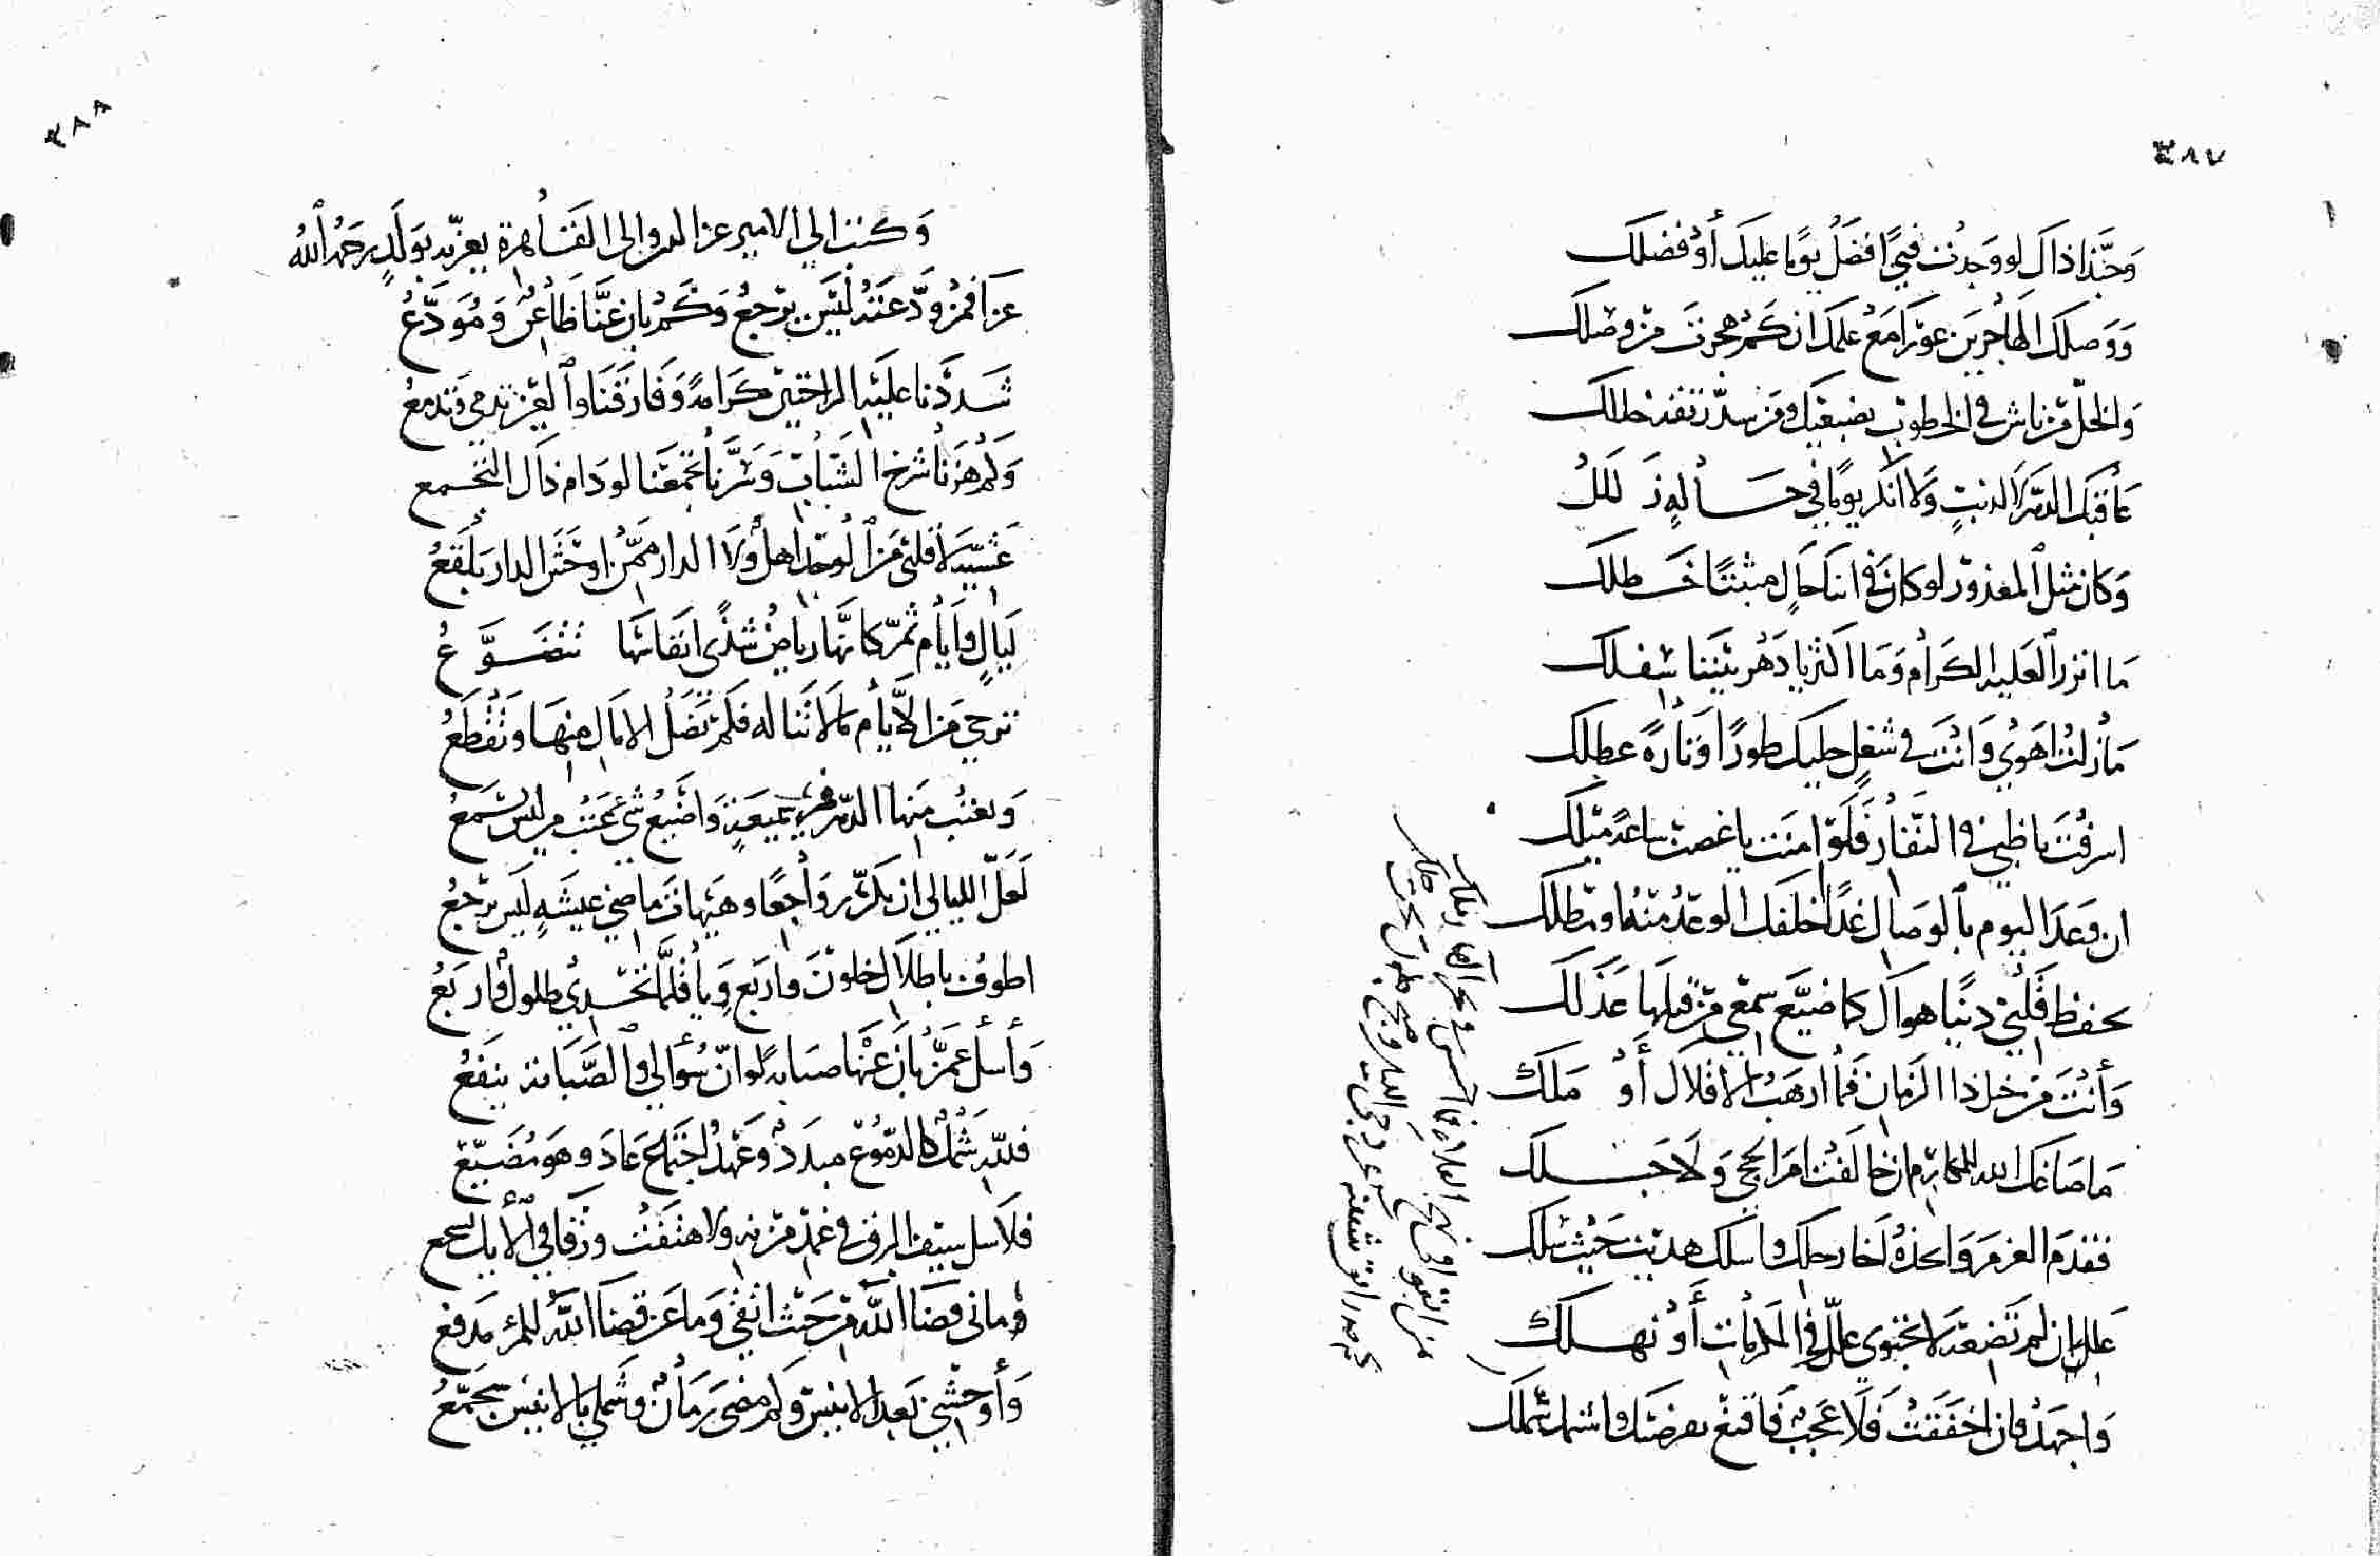 ٣٨٧
وَحَبَّذا ذاكَ لو وَجدْتَ فتىً افضَلُ يومًا عليكَ أوْ فضلك
وَوَصلك الهاجرين عوّراً مَعْ علمك ان كم هجرتَ مَنْ وصلك
والخلّ مَنْ ناش في الخطوب بضبعيك ومَن سدّ رتقه خللك
عاقبكَ الدّهر لا لذنبٍ وَلا انكر يومًا في حسالهِ زَلَلكْ
وَكان مثل المعذور لو كان في انك حالٍ مثبتًا خَطلك
مَا انزر العليه الكرام وَمَا اكثر يا دَهر بيننا سفلك
مَا زلتُ اهوي وَانتَ في شغلٍ حليك طورًا وتارةً عطلك
اسرفْتَ يا ظبي في النّفار فَلَو امنت يا غصن ساعدً ميلك
ان وَعدَ اليوم بالوصال غدًا اخلفك الوعْدُ منهُ او مطلك
بحفظ قلبي دنيًا هواك كما ضيّع سمعي مَنْ قبلها عَذَلَك
وَأنتَ مَن خل ذا الزمان فما ارهَبُ الافلاك أوْ مَلَك
مَا صَاغك الله للمكارم ان خالَفتَ امرَ الحجى وَلا جَبَلك
فقدم العزمَ وَاتخذهُ اخا رحلك واسلك هديت حَيث سَلك
عَلك ان لم تَضِعْهُ لا تجتوي علّك في المكرمات أوْ نهلك
وَاجهَدْ فان اخفَقتْ فَلا عَجبٌ فاقنع بفرضك واشمل شملك
٣٨٨
وَكتبَ الي الامير عز الدين والى القاهرة يعزّيه بوَلَدٍ رحمهُ اللهُ
عَزاً فمَنْ ودّعتَهُ ليسَ يرْجعُ وَكم بان عنّا ظاعنٌ وَمُوَدّعُ
شَددْنا عليه الراحتين كرامةً وَفارَقَنا والعَين تدمي وَتدمعُ
وَلم هزّنا شرخ الشَباب وَسَرّنا تجمعنا لو دَام ذاك التجمع
عَشيّةَ لا قلبي مَن الوجد اهل ولا الدار ممّن اوحَشَ الدار بلقعُ
لَيالٍ وأيّام تمرّ كانّها رياضُ شذًى انفاسها تتضَوّعُ
نرجي مَن الايّام ما لا نناله فكم تَضلّ الامال منها ونُقْطَعُ
وَنعتب منها الدّهر في وَاضيعُ شيءٍ عَتبُ مَن ليسَ يسمَعُ
لَعَلّ الليالي ان تكرّ رواجعًا وهيهات ماضي عيشةٍ ليسَ يرْجعُ
اطوف باطلالٍ خلونَ واربَعٍ وَيا قلّما تجدي طلولٌ واربَعُ
وَأسأل عمّن بانَ عَنها صبابةً لو انّ سُؤالي والصّبابة ينفعُ
فللّه شملٌ كالدّموع مبدَدٌ وَعَهدُ اجتماع عَادَ وهوَ مُضَيّع
فلا سل سيف البرق في غمد مزنه ولا هتفَتْ ورقا في الأيك تسجع
وَمانى قضا اللّه من حَيث اتقي وَما عَن قضا اللّه للمرء مدفع
وَأوحشني بَعد الانيسِ وَلم مضى زمانٌ وشملي بالانيس مجَمّعُ